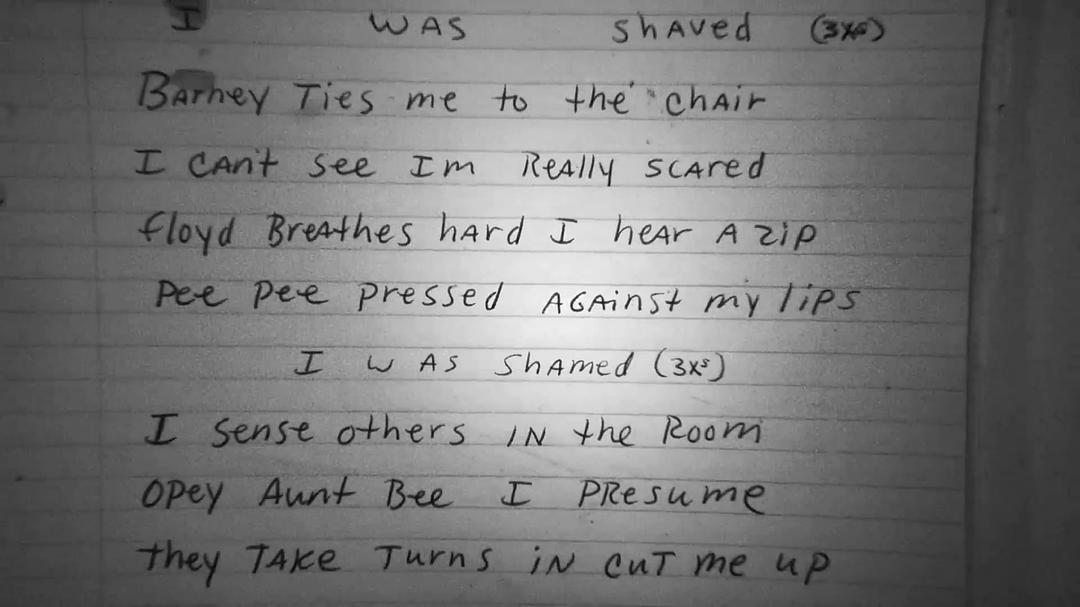 I WAS ShAved (3xs)
BArney Ties me to the chAir
I CAn't see Im ReAlly scAred
floyd BreAthes hArd I heAr A zip
Pee pee pressed AGAinst my lips
I WAS ShAmed (3xs)
I sense others IN the Room
OPey Aunt Bee I PResume
they TAKe Turns iN cuT me up